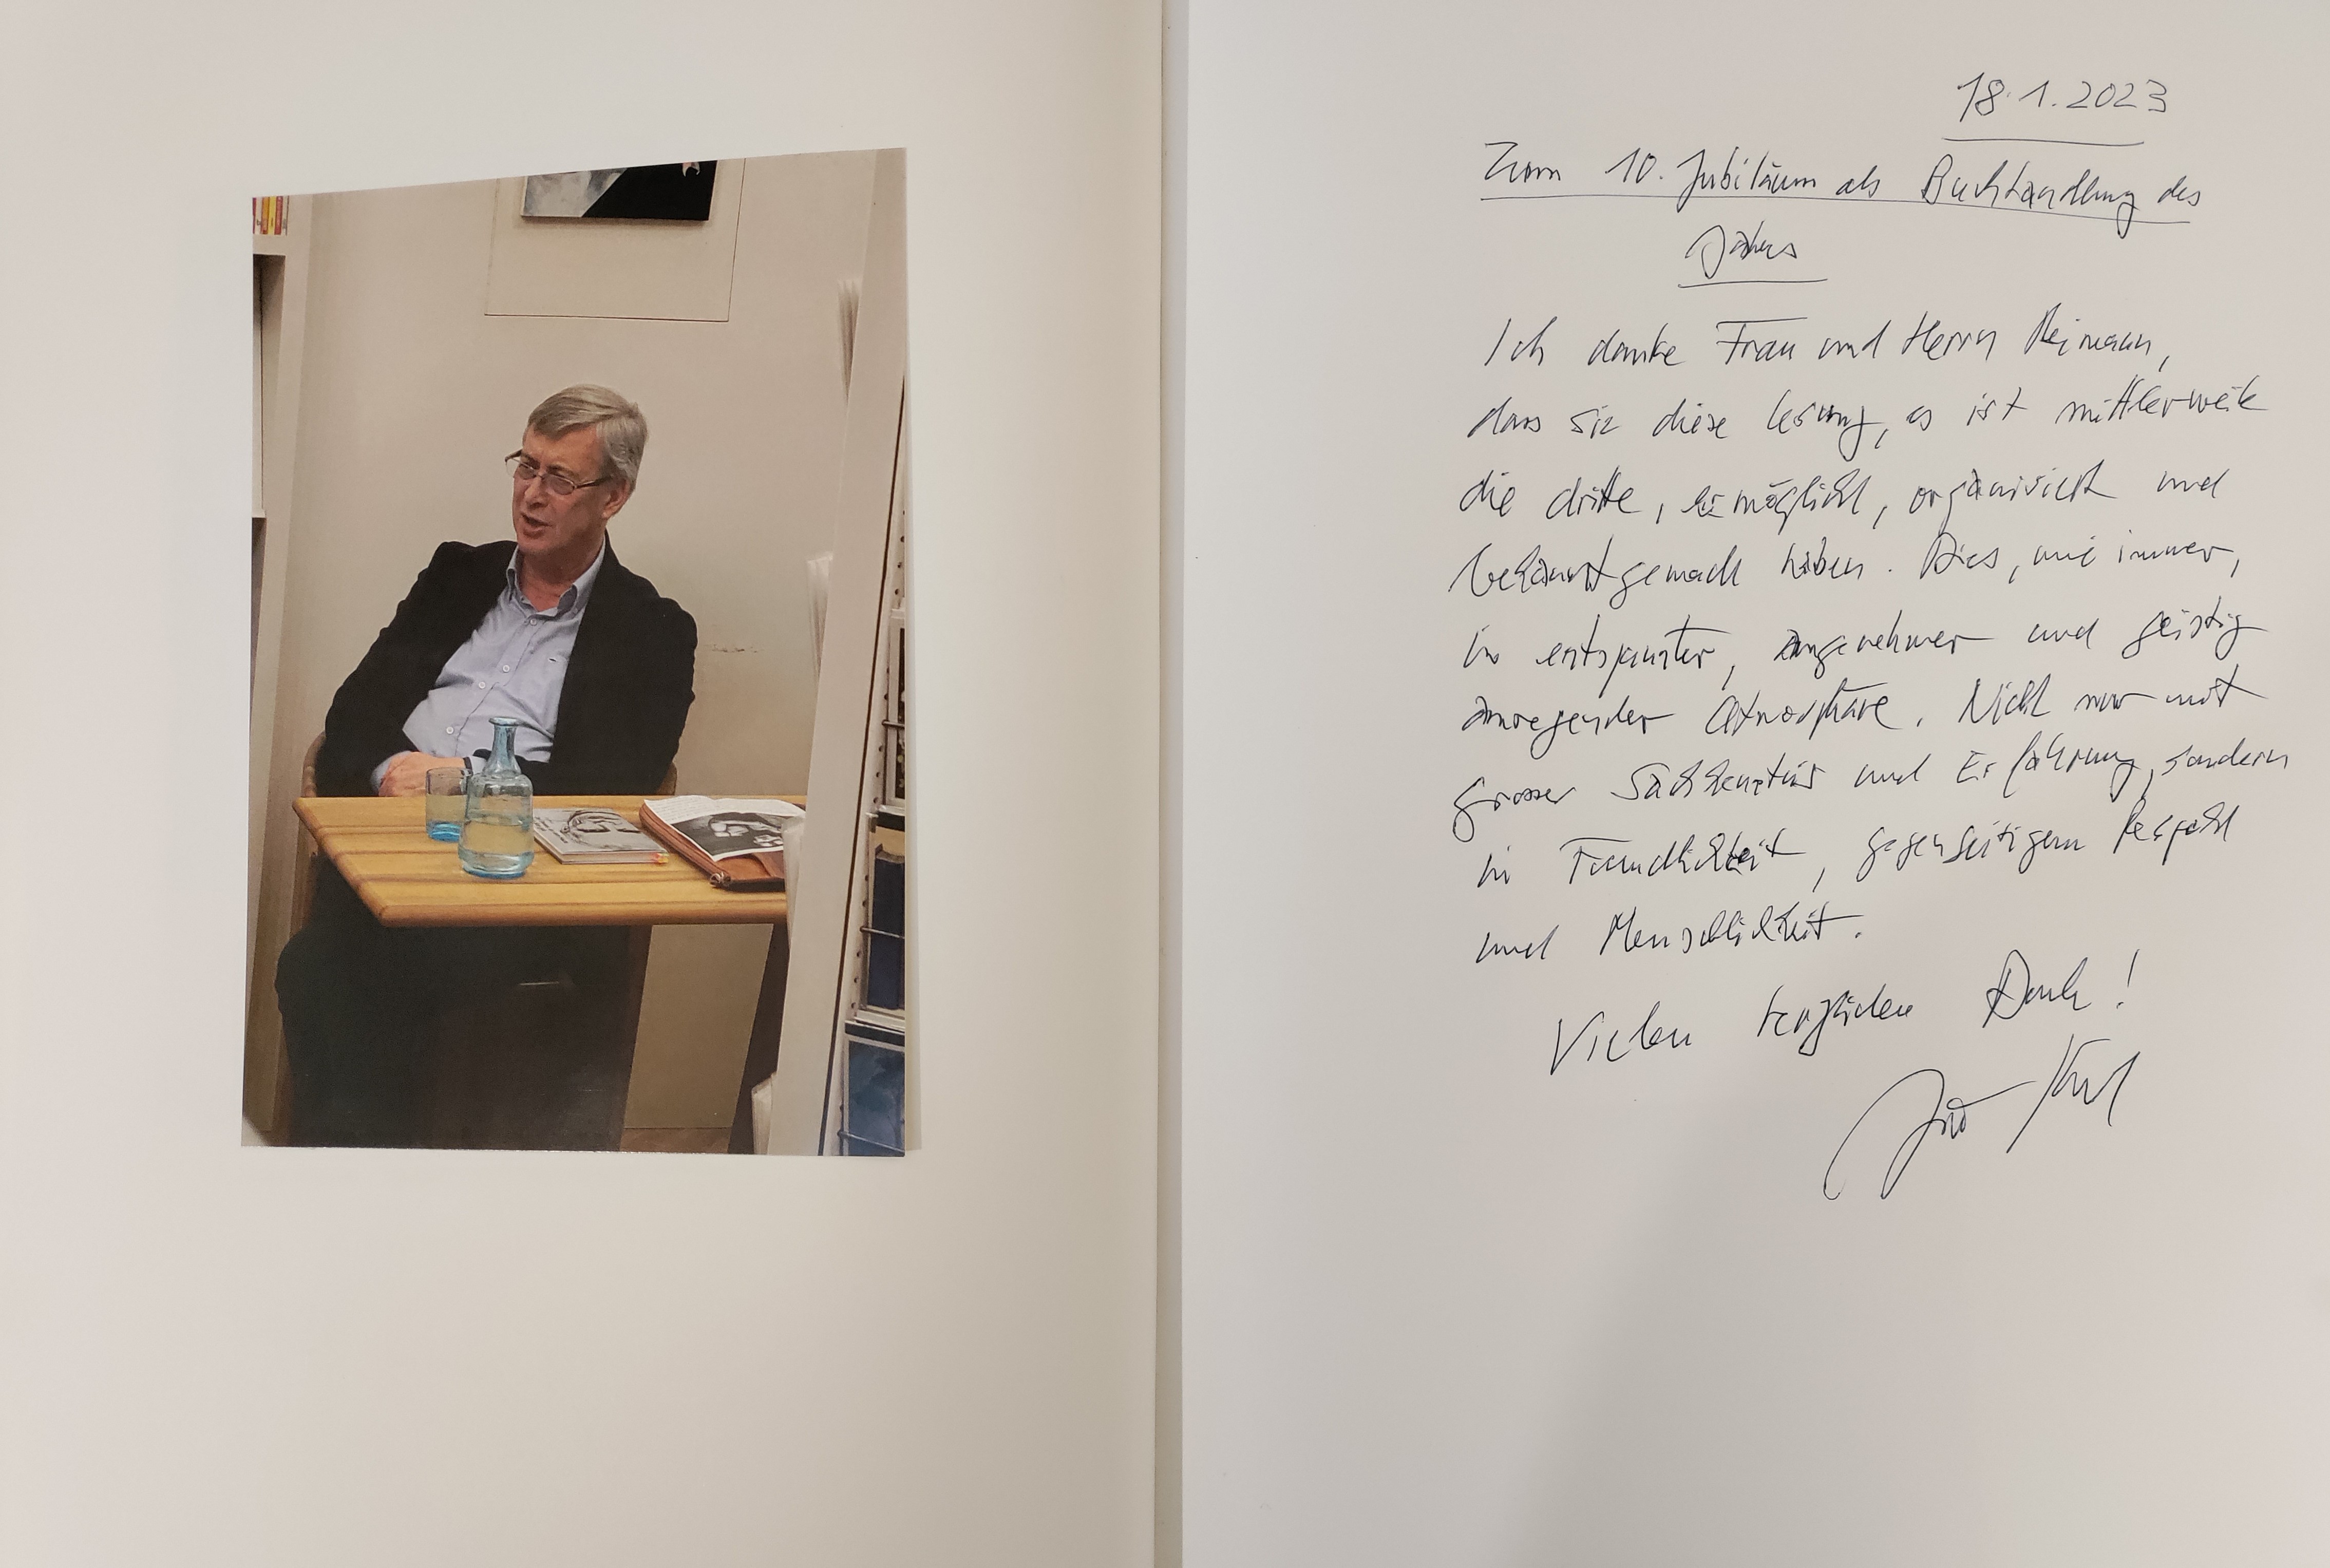 18.1.2023
Zum 10. Jubiläum als Buchhandlung des
Jahres
Ich danke Frau und Herrn Reimann,
dass sie diese Lesung, es ist mittlerweile
die dritte, ermöglicht, organisiert und
bekannt gemacht haben. Dies, wie immer,
in entspannter, angenehmer und geistig
anregender Atmosphäre. Nicht nur mit
grosser Sachkenntnis und Erfahrung, sondern
in Freundlichkeit, gegenseitigem Respekt
und Menschlichkeit.
Vielen herzlichen Dank!